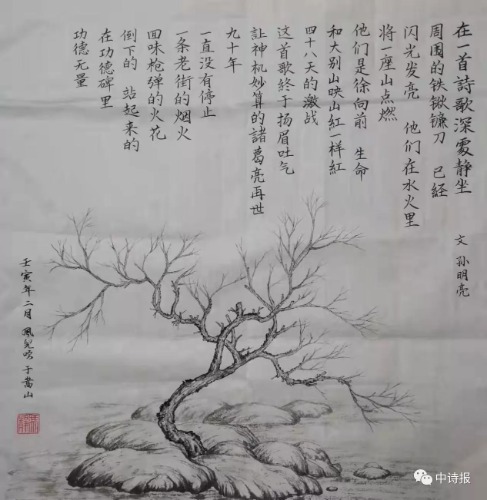 在一首詩歌深處静坐
周围的铁锨镰刀 已经
闪光发亮 他们在水火里
将一座山点燃
他们是徐向前 生命
和大别山映山红一样红
四十八天的激战
这首歌终于扬眉吐气
让神机妙算的諸葛亮再世
九十年
一直没有停止
一条老街的烟火
回味枪弹的火花
倒下的 站起来的
在功德碑里
功德无量
文 孙明亮
壬寅年二月 于嵩山
中诗报